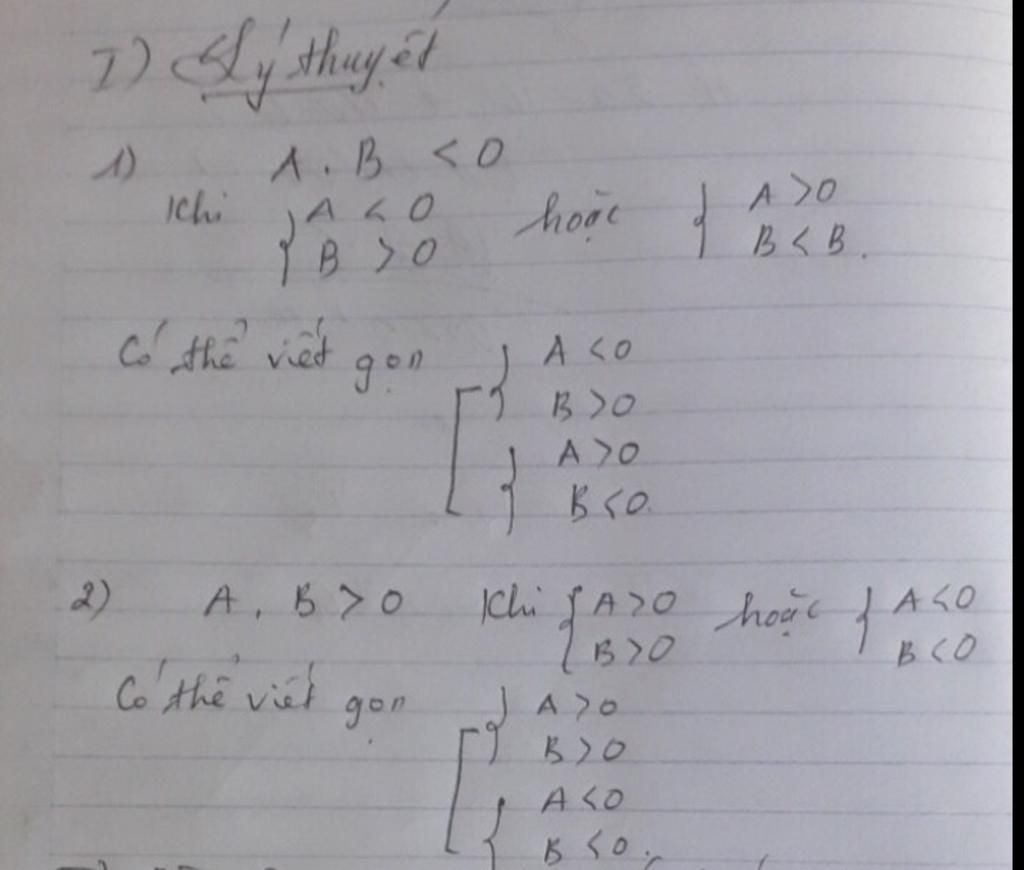 I) Lý thuyết
1) A . B < 0
Khi { A < 0 hoặc { A > 0
B > 0 B < B.
Có thể viết gọn [ { A < 0
B > 0
{ A > 0
B < 0.
2) A . B > 0 Khi { A > 0 hoặc { A < 0
B > 0 B < 0
Có thể viết gọn [ { A > 0
B > 0
{ A < 0
B < 0.